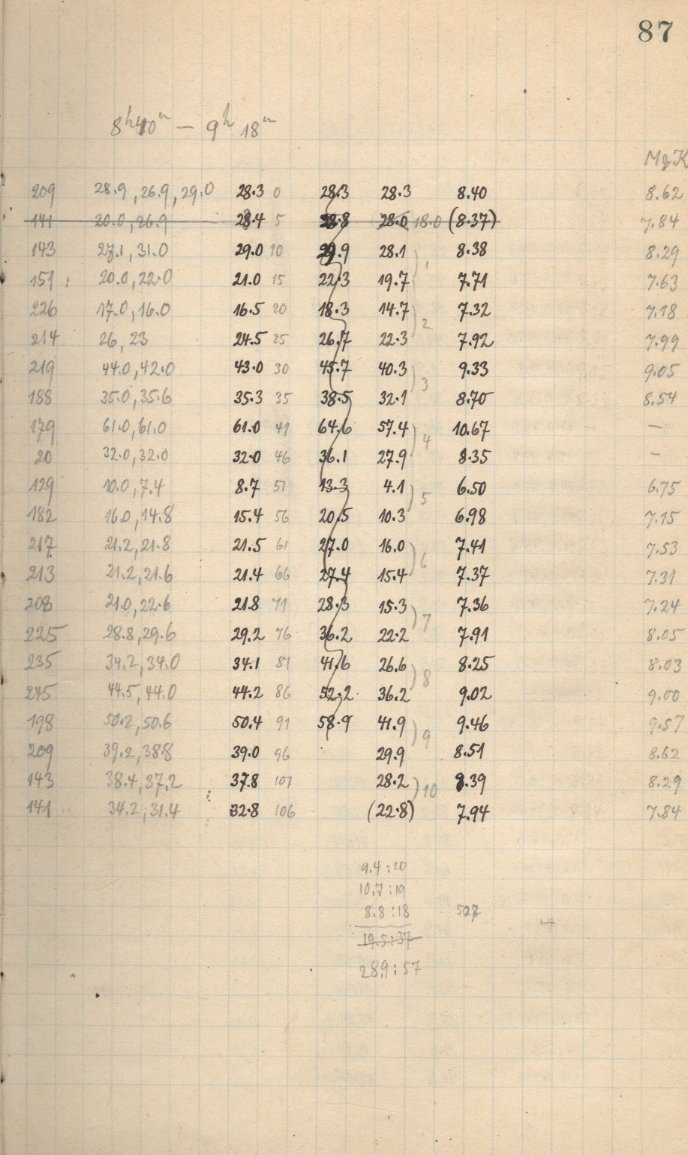 87
8ʰ40ᵐ — 9ʰ 18ᵐ
MgK
209 28.9, 26.9, 29.0 28.3 0 28.3 28.3 8.40 8.62
141 20.0, 26.9 28.4 5 28.8 28.0 18.0 (8.37) 7.84
143 27.1, 31.0 29.0 10 29.9 28.1 ) 1 8.38 8.29
151 20.0, 22.0 21.0 15 22.3 19.7 7.71 7.63
226 17.0, 16.0 16.5 20 18.3 14.7 ) 2 7.32 7.18
214 26, 23 24.5 25 26.7 22.3 7.92 7.99
219 44.0, 42.0 43.0 30 45.7 40.3 ) 3 9.33 9.05
188 35.0, 35.6 35.3 35 38.5 32.1 8.70 8.54
179 61.0, 61.0 61.0 41 64.6 57.4 ) 4 10.67 —
20 32.0, 32.0 32.0 46 36.1 27.9 8.35 —
129 10.0, 7.4 8.7 51 13.3 4.1 ) 5 6.50 6.75
182 16.0, 14.8 15.4 56 20.5 10.3 6.98 7.15
217 21.2, 21.8 21.5 61 27.0 16.0 ) 6 7.41 7.53
213 21.2, 21.6 21.4 66 27.4 15.4 7.37 7.31
208 21.0, 22.6 21.8 71 28.3 15.3 ) 7 7.36 7.24
225 28.8, 29.6 29.2 76 36.2 22.2 7.91 8.05
235 34.2, 34.0 34.1 81 41.6 26.6 ) 8 8.25 8.03
245 44.5, 44.0 44.2 86 52.2 36.2 9.02 9.00
198 50.2, 50.6 50.4 91 58.9 41.9 ) 9 9.46 9.57
209 39.2, 38.8 39.0 96 29.9 8.51 8.62
143 38.4, 37.2 37.8 101 28.2 ) 10 8.39 8.29
141 34.2, 31.4 32.8 106 (22.8) 7.94 7.84
9.4 : 20
10.7 : 19
8.8 : 18 507
19.5 : 37
28.9 : 57